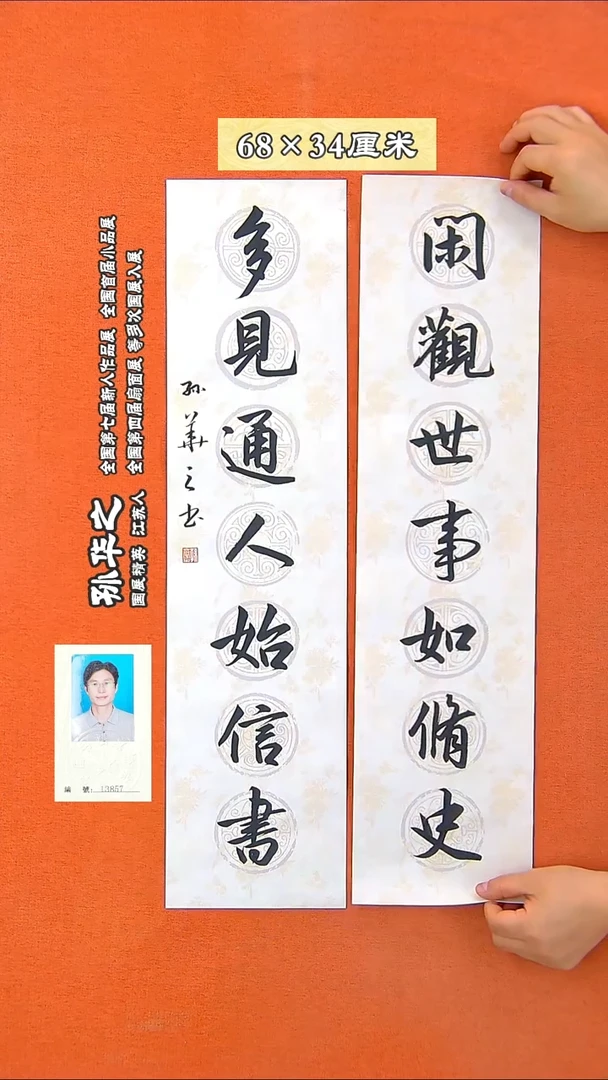 68×34厘米
閑觀世事如脩史
多見通人始信書
孙華之书
孙华之
全國第七届新人作品展 全國首届小品展
國展精英 江苏人 全國第四届扇面展 等多次國展入展
編 號: 13857